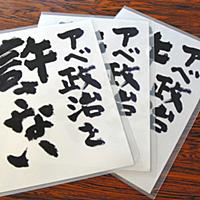 アベ政治を
許さない
アベ政治
アベ政治